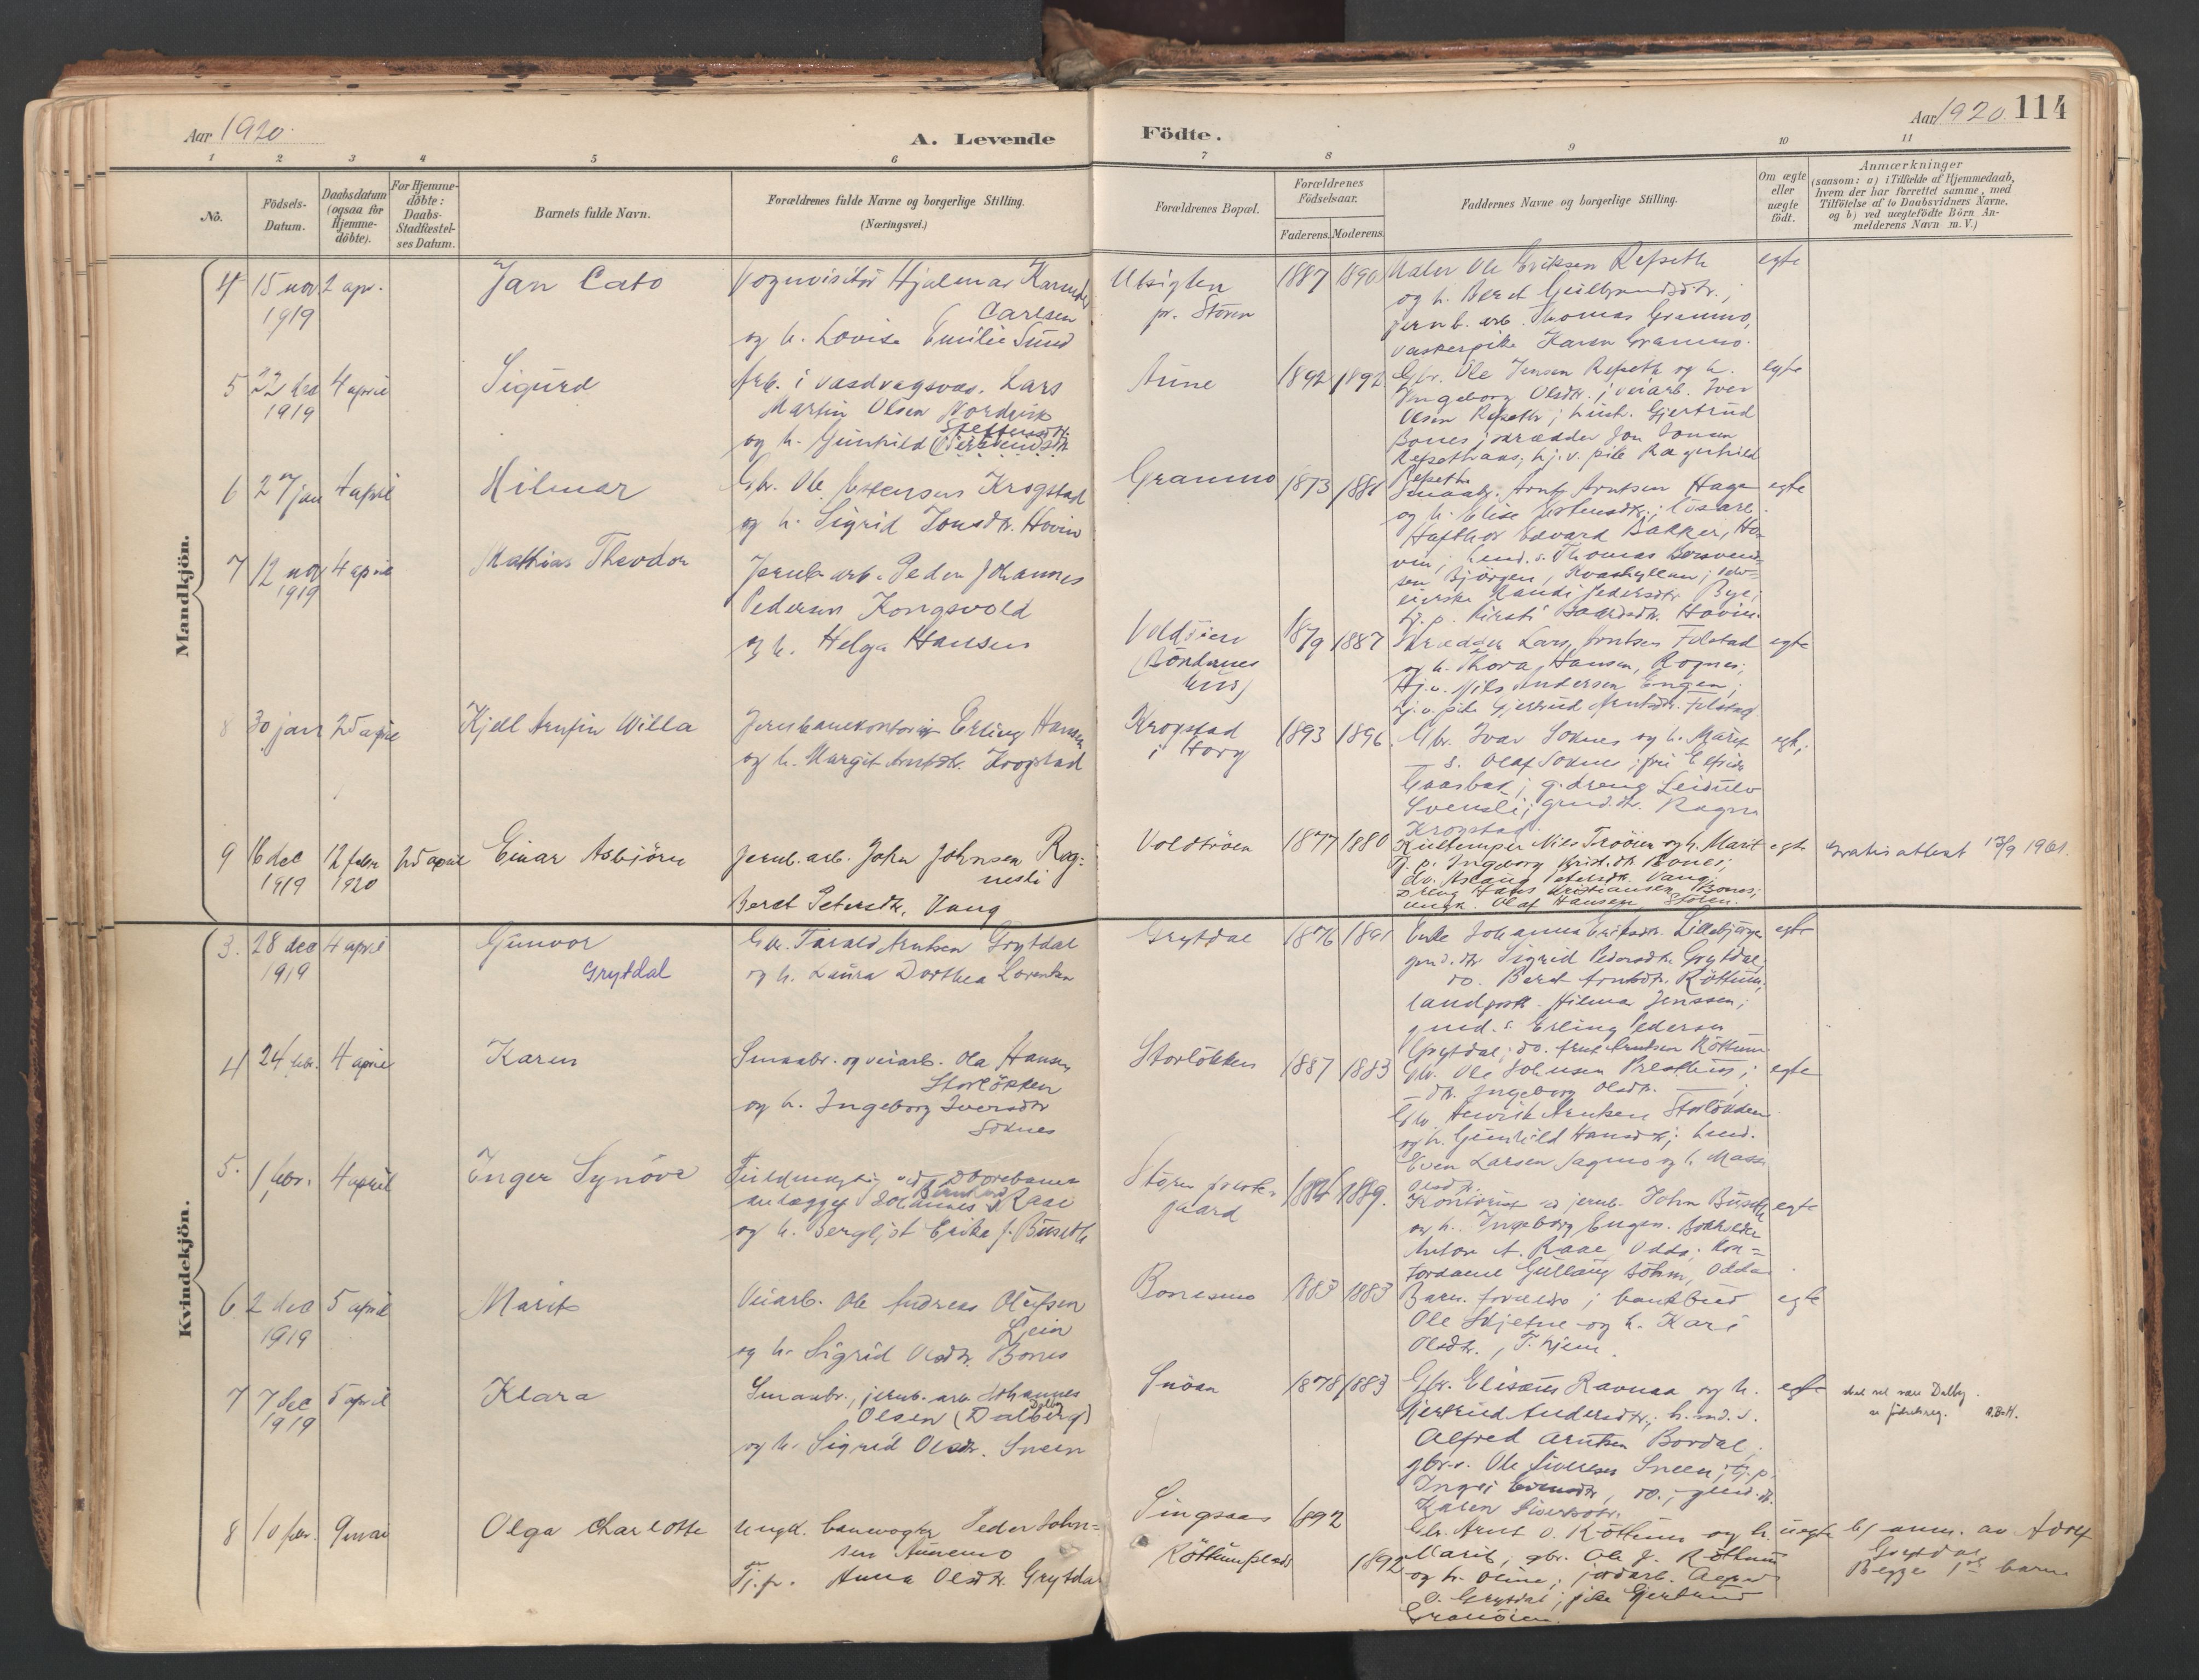 Aar 1920.
A. Levende Födte.
Aar 1920. 114
1 2 3 4 5 6 7 8 9 10 11
No.
Födsels-
Datum.
Daabsdatum
(ogsaa for
Hjemme-
döbte).
For Hjemme-
döbte:
Daabs-
Stadfæstel-
ses Datum.
Barnets fulde Navn.
Forældrenes fulde Navne og borgerlige Stilling.
(Næringsvei.)
Forældrenes Bopæl.
Forældrenes
Födselsaar.
Faderens. Moderens.
Faddernes Navne og borgerlige Stilling.
Om ægte
eller
uægte
födt.
Anmærkninger
(saasom: a) i Tilfælde af Hjemmedaab,
hvem der har forrettet samme, med
Tilföielse af to Daabsvidners Navne,
og b) ved uægtefödte Börn An-
melderens Navn m. V.)
Mandkjön.
4 15 nov. 2 apr.
1919
Jan Cato
Vognvisitör Hjalmar
Carlsen
og h. Lovise Emilie Sund
Utsigten
pr. Stören
1887 1890
Maler Ole Eriksen Refseth
og h. Beret
jernb. arb. Thomas Granmo,
vaskerpike Karen Granmo.
egte
5 22 dec 4 april
1919
Sigurd
Arb. i vasdragsvæs. Lars
Martin Olsen Nordvik
og h. Gunhild
Aune
1892 1892
Gbr. Ole Jensen Refseth og h.
Ingeborg Olsdtr.; veiarb. Iver
Olsen Refseth; hust. Gjertrud
Bones; skrædder Jon Jonsen
Refsethaas; hj. v. pike Ragnhild
Refseth
egte
6 27 jan 4 april
Hilmar
Gbr. Ole Estensen Krogstad
og h. Sigrid Jonsdtr. Hovin
Granmo
1873 1881
Smaabr. Arnt Arntsen Haga
og h. Elise
Edvard Bakker, Ho-
vin; Thomas
sen Björgen,
Randi Pedersdtr Bye;
Hovin.
egte
7 12 nov 4 april
1919
Mathias Theodor
Jernb. arb. Peder Johannes
Pedersen Kongsvold
og h. Helga Hansen
Voldöien
(Böndernes
hus)
1879 1887
Skrædder Lars Arntsen Folstad
og h. Thora Hansen, Rognes;
Hj. v. Nils Andersen Engen;
hj. v. pike Gjertrud Arntsdtr. Folstad
egte
8 30 jan 25 april
Kjell Arnfin Willa
Jernbanekontorist Erling Hansen
og h. Margit Arntsdtr. Krogstad
Krogstad
i Horg
1893 1896
Gbr. Ivar Soknes og h. Marit
s. Olaf Soknes;
g. dreng
Svensli; gmd. dtr. Ragna
Krogstad.
egte
9 16 dec 12 febr 25 april
1919 1920
Einar Asbjörn
Jernb. arb. John Johnsen Rog-
nesli
Beret Petersdtr. Vang
Voldöien
1877 1880
Nils Trööien og h. Marit
Tj. p. Ingeborg Bones;
do. Aslaug Petersdtr. Vang;
Dreng Hans Kristiansen Bones;
ungk. Olaf Hansen Stören.
egte
Gratis attest 13/9 1961.
Kvindekjön.
3. 28 dec 4 april
1919
Gunvor
Grytdal
Gbr. Tarald Arntsen Grytdal
og h. Laura Dorthea Lorentsen
Grytdal
1876 1891
Enke Johanna Eriksdtr. Lillebjerge
gmd. dtr Sigrid Pedersdtr Grytdal;
do. Beret Arntsdtr. Röttum;
landpostb. Hilmar Jenssen;
gmd. s. Erling Pedersen
Grytdal; do. Arnt Arntsen Röttum
egte
4 24 febr. 4 april
Karen
Smaabr. og veiarb. Ola Hansen
Storlökken
og h. Ingeborg Iversdtr
Soknes
Storlökken
1887 1883
Gbr. Ole Johnsen Presthus;
dtr. Ingeborg Olsdtr.
Gbr. Henrik Arntsen Storlökken
og h. Gunhild Hansdtr;
Even Larsen Sagmo og h. Massi
Olsdtr.
egte
5. 1 febr. 4 april
Inger Synöve
Fuldmægtig ved Dovrebanen
anlægget Johannes Bernhard Raae
og h. Bergljot Erika f. Buseth
Stören preste-
gaard
1884 1889.
Kontorist v jernb. John Buseth
og h. Ingeborg Engen. Bokholder
Anton A. Raae, Odda; kon-
tordame Gudlaug Böhm, Odda.
egte
6. 2 dec 5 april
1919
Marit
Veiarb. Ole Andreas Olufsen
Lein
og h. Sigrid Olsdtr. Bones
Bonesmo
1883 1883
Barn. foreldre; bankbud
Ole Skjetne og h. Kari
Olsdtr., T.hjem.
egte
7 7 dec 5 april
1919
Klara
Smaabr., jernb. arb Johannes
Dalby
Olsen (Dalberg)
og h. Sigrid Olsdtr. Sneen
Snöan
1878 1883
Gbr. Elisæus Ravnaa og h.
Gjertrud Andersdtr; h.md. s.
Alfred Arntsen Bordal;
gbr. s. Ole Sivertsen Sneen; tj. p.
Ingri Evensdtr, do.; gmd. dt.
Karen Sivertsdtr.
egte
skal vel være Dalby.
se födselsreg. A.B.H.
8 10 jan. 9 mai
Olga Charlotte
Ungk. banevogter Peder John-
sen Aunemo
Tj. p. Anna Olsdtr Grytdal
Singsaas
Röttumplads
1892
1892
Gbr. Arnt O. Röttum og h.
Marit, gbr. Ole J. Röttum
og h. Oline; jordarb. Alfred
O. Grytdal; pike Gjertrud
Granöien.
uegte
b) anm. av Adolf
Grytdal
Begge 1ste barn